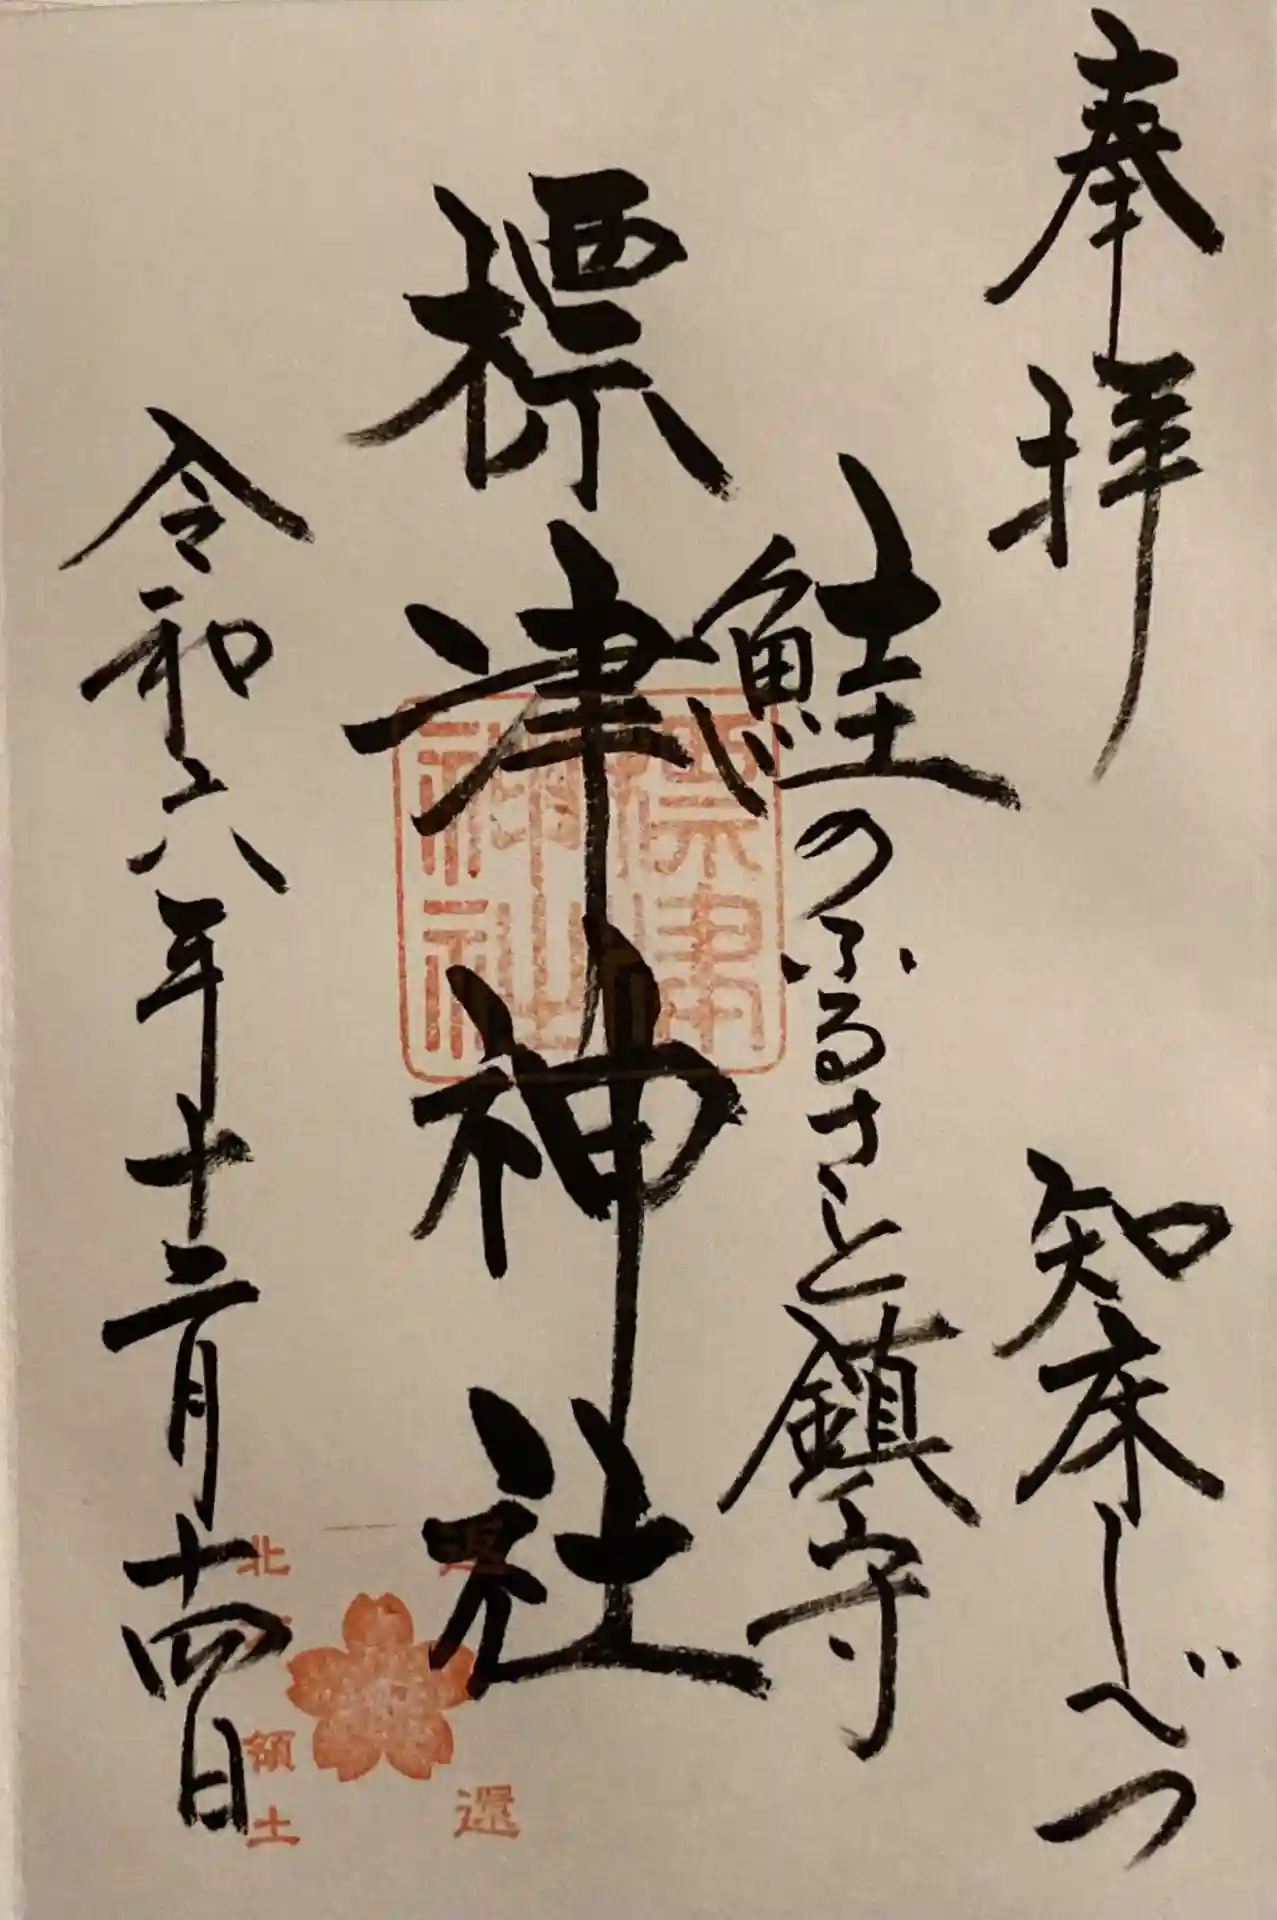 奉拝
知床しべつ
鮭のふるさと鎮守
標津神社
令和六年十二月十四日
標津
神社
返還
北方領土